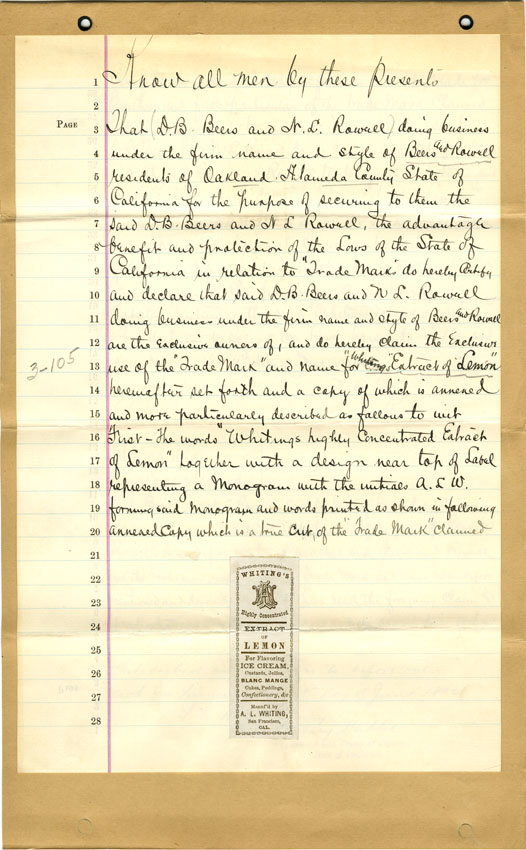 Know all men by these Presents
PAGE
That (D.B. Beers and N. L. Rowell) doing business
under the firm name and style of Beers and Rowell
residents of Oakland Alameda County State of
California for the purpose of securing to them the
said D.B. Beers and N L Rowell, the advantage
benefit and protection of the Laws of the State of
California in relation to "Trade Mark" do hereby Certify
and declare that said D.B. Beers and N L. Rowell
doing business under the firm name and style of Beers and Rowell
are the exclusive owners of, and do hereby claim the Exclusive
use of the "Trade Mark" and name "for Whitings "Extract of Lemon"
hereinafter set forth and a copy of which is annexed
and more particularly described as follows to wit
"First - The words "Whitings highly Concentrated Extract
of Lemon" together with a design near top of Label
representing a Monogram with the initials A. L W.
forming said Monogram and words printed as shown in following
annexed Copy which is a true cut, of the "Trade Mark" claimed
3-105
1
2
3
4
5
6
7
8
9
10
11
12
13
14
15
16
17
18
19
20
21
22
23
24
25
26
27
28
WHITING'S
Highly Concentrated
EXTRACT
OF
LEMON
For Flavoring
ICE CREAM,
Custards, Jellies,
BLANC MANGE
Cakes, Puddings,
Confectionery, &c
Manuf'd by
A. L. WHITING,
San Francisco,
CAL.